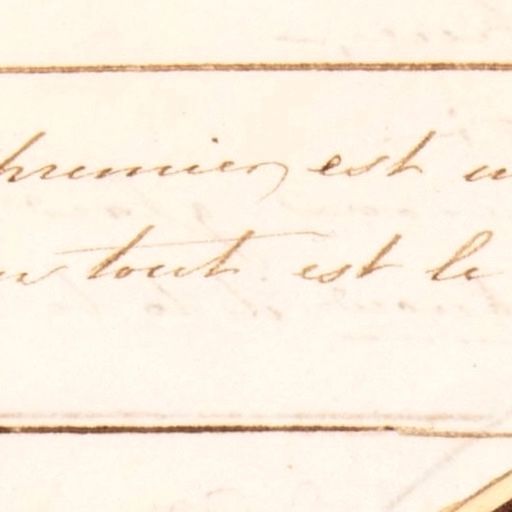 premier est
tout est le